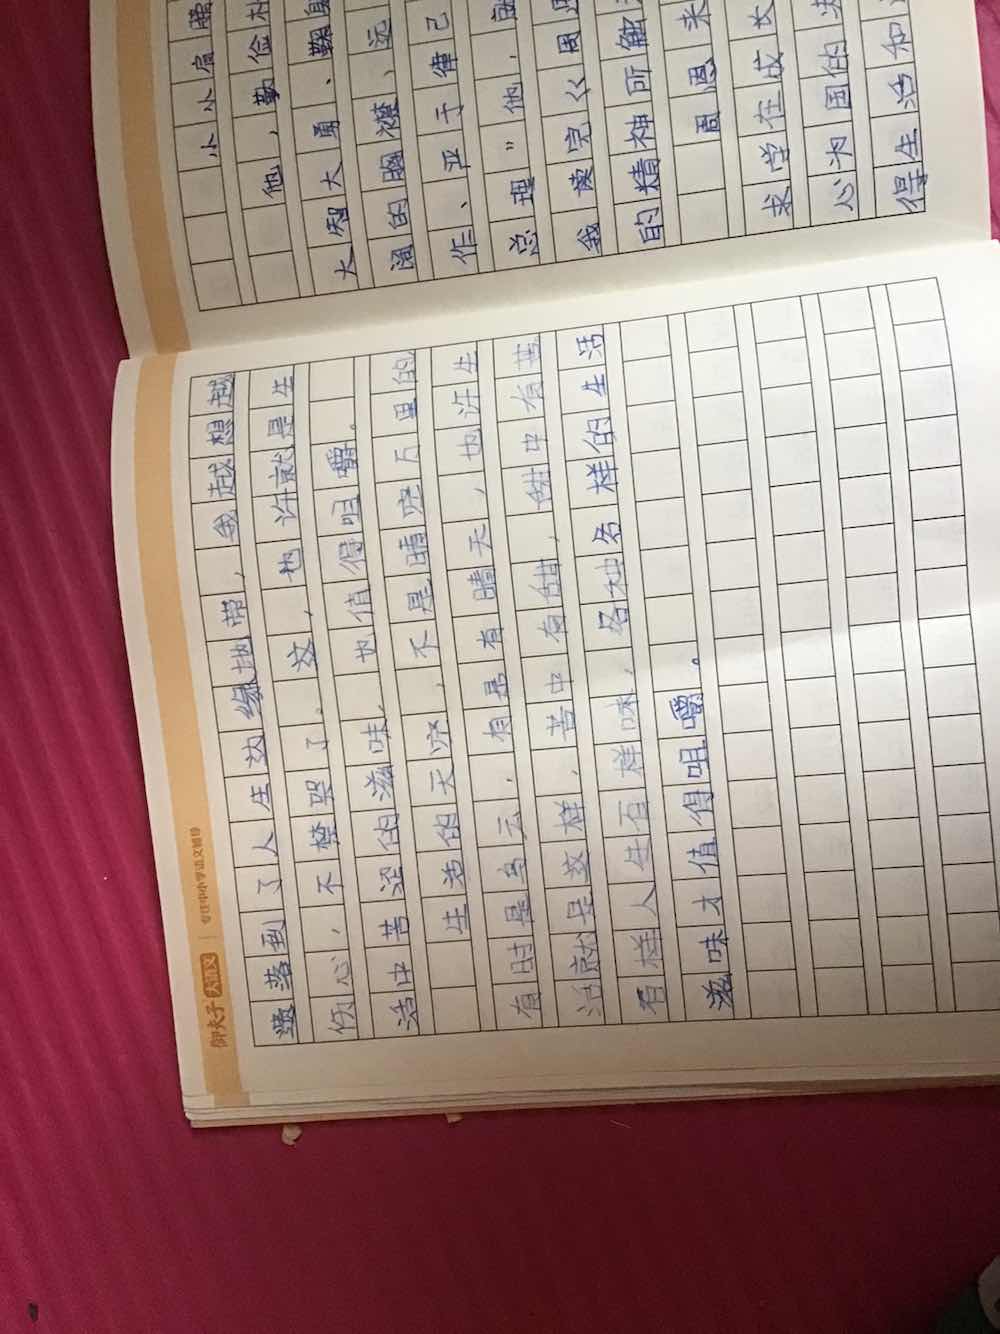 御夫子 大语文 | 专注中小学语文辅导
坠落到了人生边缘地带，我越想越
伤心，不禁哭了。这，也许就是生
活中苦涩的滋味，也值得咀嚼。
生活的天空，不是晴空万里的
有时是乌云，有是有晴天，也许生
活就是这样，苦中有甜，甜中有苦
百样人生百样味，各种各样的生活
滋味才值得咀嚼。
小小肩膀
他，勤俭朴
大智大勇、鞠躬
阔的胸襟、远
作、严于律己
总理”他，就
我读完《周恩
的精神所触
周恩来
求学在成长
心为国的决
得生活和